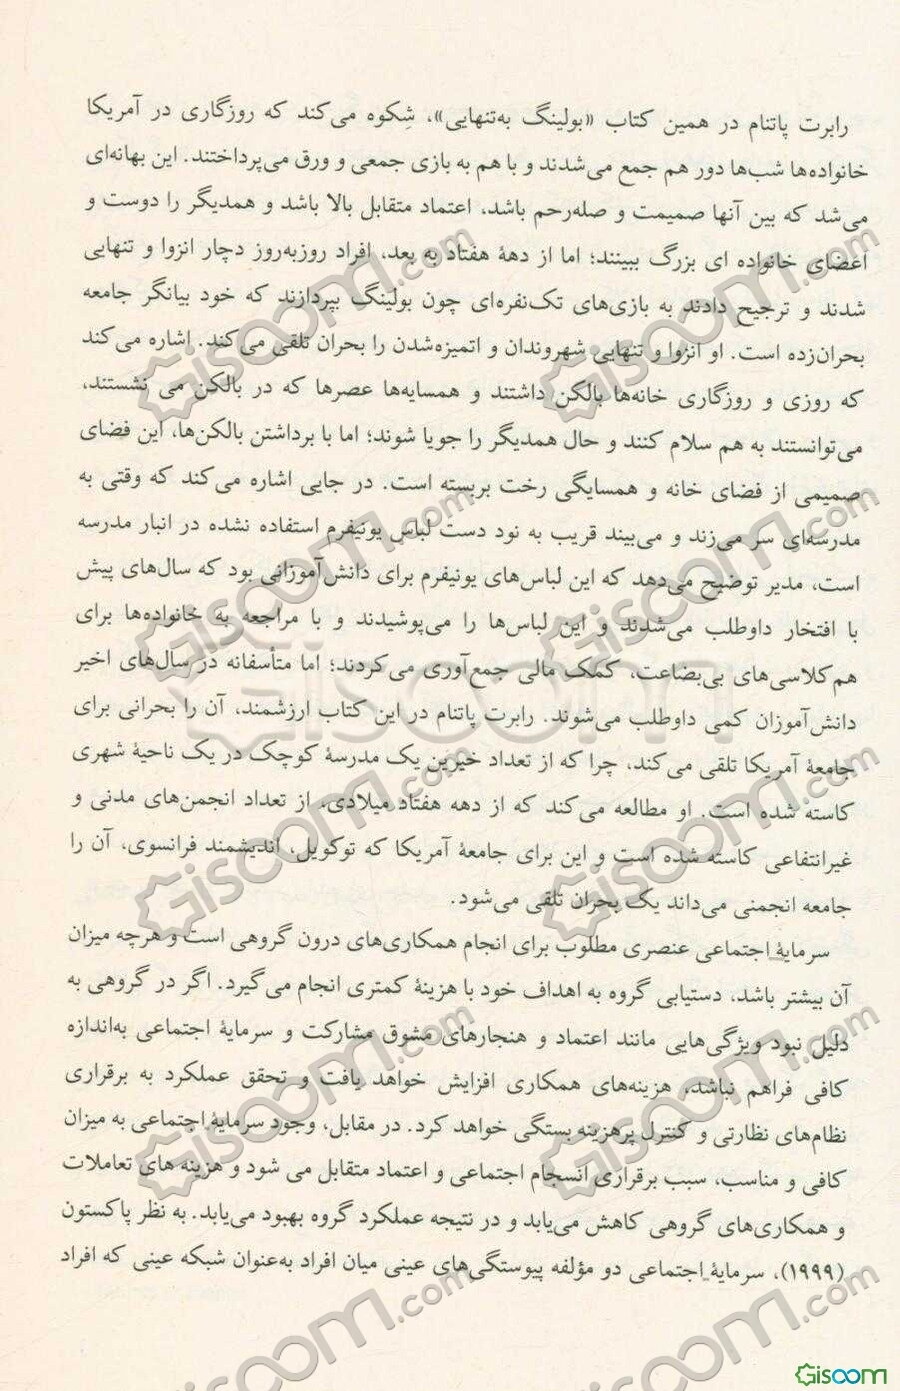 رابرت پاتنام در همین کتاب «بولینگ به‌تنهایی»، شِکوه می‌کند که روزگاری در آمریکا
خانواده‌ها شب‌ها دور هم جمع می‌شدند و با هم به بازی جمعی و ورق می‌پرداختند. این بهانه‌ای
می‌شد که بین آنها صمیمت و صله‌رحم باشد، اعتماد متقابل بالا باشد و همدیگر را دوست و
اعضای خانواده ای بزرگ ببینند؛ اما از دههٔ هفتاد به بعد، افراد روزبه‌روز دچار انزوا و تنهایی
شدند و ترجیح دادند به بازی‌های تک‌نفره‌ای چون بولینگ بپردازند که خود بیانگر جامعه
بحران‌زده است. او انزوا و تنهایی شهروندان و اتمیزه‌شدن را بحران تلقی می‌کند. اشاره می‌کند
که روزی و روزگاری خانه‌ها بالکن داشتند و همسایه‌ها عصرها که در بالکن می نشستند،
می‌توانستند به هم سلام کنند و حال همدیگر را جویا شوند؛ اما با برداشتن بالکن‌ها، این فضای
صمیمی از فضای خانه و همسایگی رخت بربسته است. در جایی اشاره می‌کند که وقتی به
مدرسه‌ای سر می‌زند و می‌بیند قریب به نود دست لباس یونیفرم استفاده نشده در انبار مدرسه
است، مدیر توضیح می‌دهد که این لباس‌های یونیفرم برای دانش‌آموزانی بود که سال‌های پیش
با افتخار داوطلب می‌شدند و این لباس‌ها را می‌پوشیدند و با مراجعه به خانواده‌ها برای
هم‌کلاسی‌های بی‌بضاعت، کمک مالی جمع‌آوری می‌کردند؛ اما متأسفانه در سال‌های اخیر
دانش‌آموزان کمی داوطلب می‌شوند. رابرت پاتنام در این کتاب ارزشمند، آن را بحرانی برای
جامعهٔ آمریکا تلقی می‌کند، چرا که از تعداد خیرین یک مدرسهٔ کوچک در یک ناحیهٔ شهری
کاسته شده است. او مطالعه می‌کند که از دهه هفتاد میلادی، از تعداد انجمن‌های مدنی و
غیرانتفاعی کاسته شده است و این برای جامعهٔ آمریکا که توکویل، اندیشمند فرانسوی، آن را
جامعه انجمنی می‌داند یک بحران تلقی می‌شود.
سرمایهٔ اجتماعی عنصری مطلوب برای انجام همکاری‌های درون گروهی است و هرچه میزان
آن بیشتر باشد، دستیابی گروه به اهداف خود با هزینهٔ کمتری انجام می‌گیرد. اگر در گروهی به
دلیل نبود ویژگی‌هایی مانند اعتماد و هنجارهای مشوق مشارکت و سرمایهٔ اجتماعی به‌اندازه
کافی فراهم نباشد، هزینه‌های همکاری افزایش خواهد یافت و تحقق عملکرد به برقراری
نظام‌های نظارتی و کنترل پرهزینه بستگی خواهد کرد. در مقابل، وجود سرمایهٔ اجتماعی به میزان
کافی و مناسب، سبب برقراری انسجام اجتماعی و اعتماد متقابل می شود و هزینه های تعاملات
و همکاری‌های گروهی کاهش می‌یابد و در نتیجه عملکرد گروه بهبود می‌یابد. به نظر پاکستون
(۱۹۹۹)، سرمایهٔ اجتماعی دو مؤلفه پیوستگی‌های عینی میان افراد به‌عنوان شبکه عینی که افراد
Gisoom
Gisoom.com